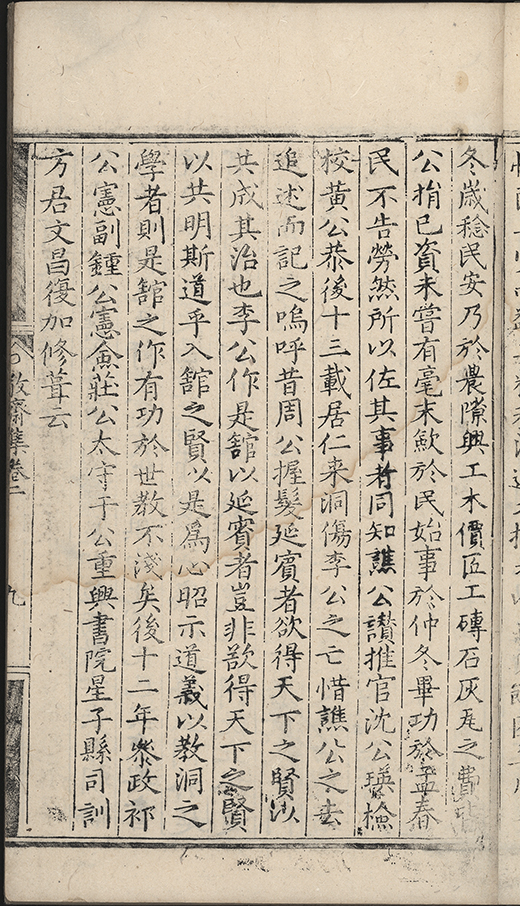 冬歲稔民安乃於農隙興工木價匠工磚石灰瓦之費皆
公捐已資未嘗有毫末歛於民始事於仲冬畢功於孟春
民不告勞然所以佐其事者同知譙公讃推官沈公瑛檢
校黃公恭後十三載居仁来洞傷李公之亡惜譙公之去
追述而記之嗚呼昔周公握髮延賓者欲得天下之賢以
共成其治也李公作是舘以延賓者豈非欲得天下之賢
以共明斯道乎入舘之賢以是爲心昭示道義以教洞之
學者則是舘之作有功於世教不淺矣後十二年叅政祁
公憲副鍾公憲僉莊公太守于公重興書院星子縣司訓
方君文昌復加修葺云
敬齋集卷二
九